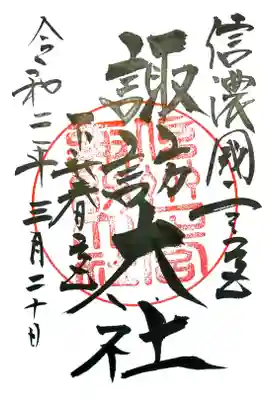 信濃國一之宮
諏訪大社
下社春宮
令和二年三月二十日